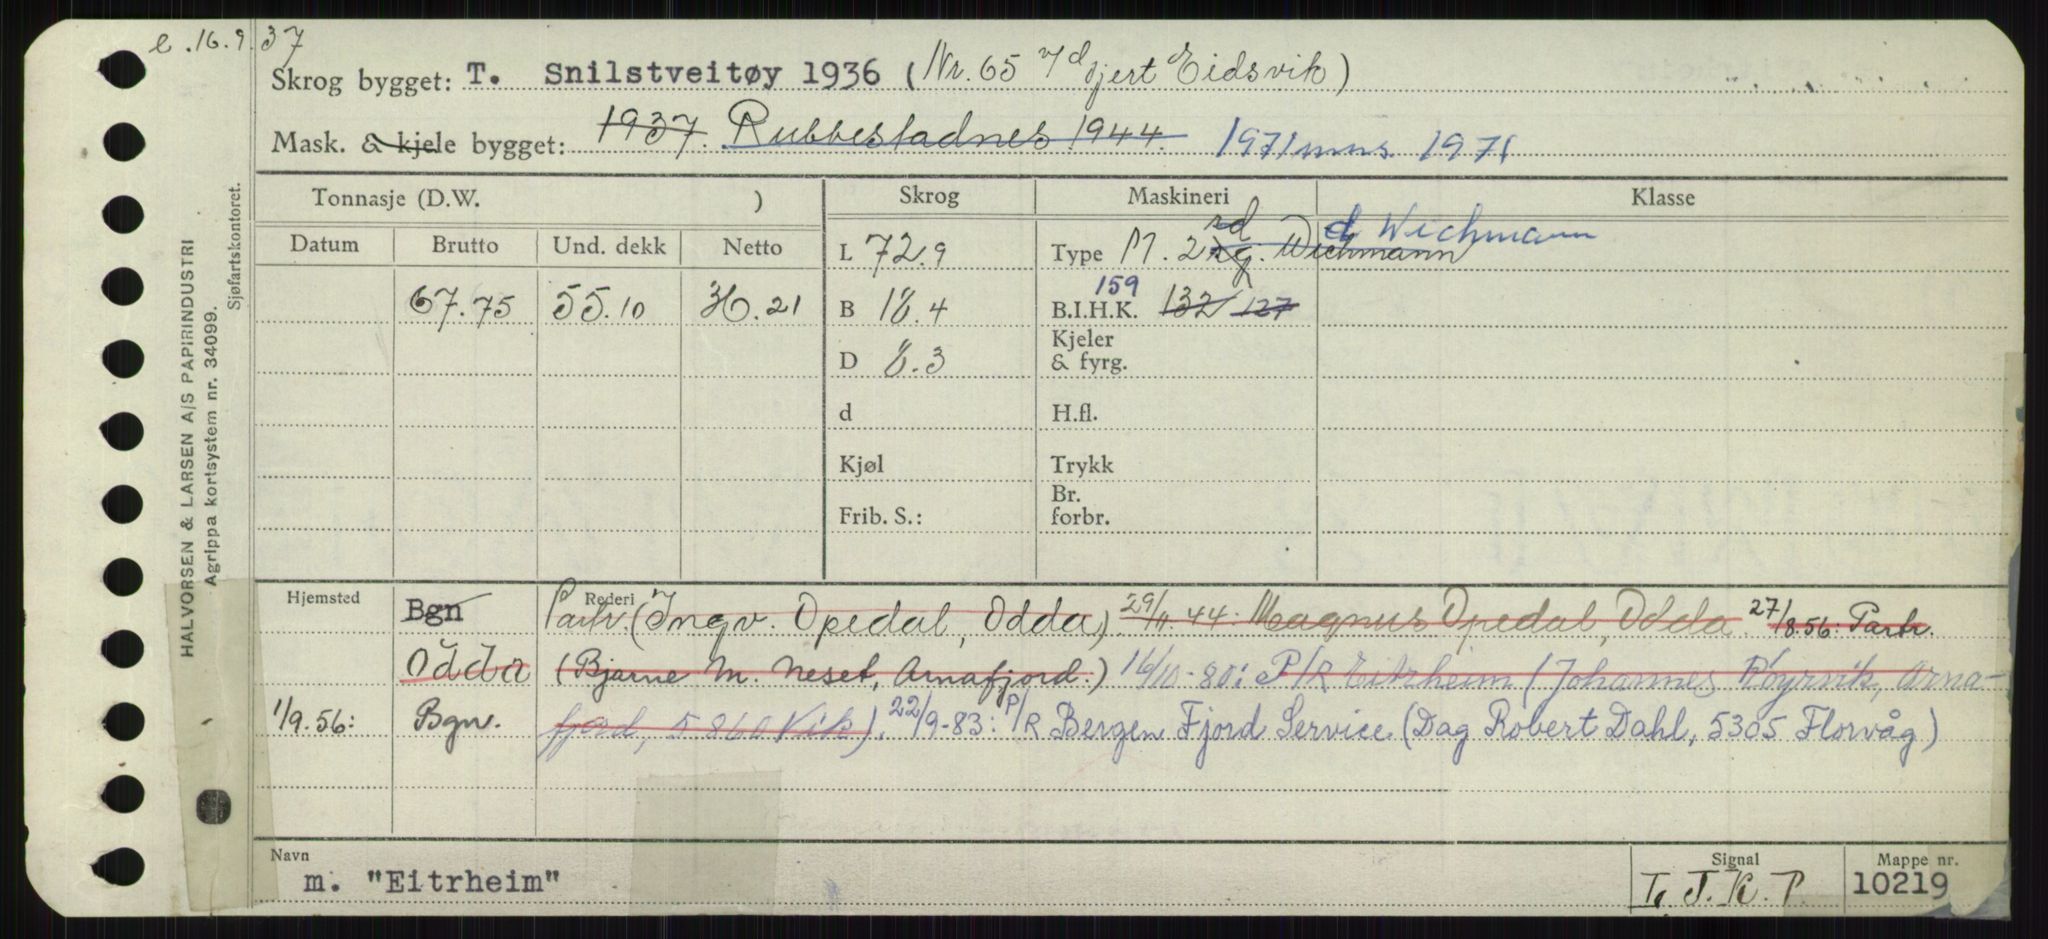 e. 16.9.37
Skrog bygget: T. Snilstveitøy 1936 (Nr. 65 Gjert Eidsvik)
Mask. & kjele bygget: 1937. Rubbestadnes 1944. 1971 mus. 1971
Tonnasje (D.W. ) Skrog Maskineri Klasse
Datum Brutto Und. dekk Netto
L 72.9 Type M. 2 rd Wichmann d Wichmann
159
67.75 55.10 36.21 B 18.4 B.I.H.K. 132/127
D 8.3 Kjeler & fyrg.
d H.fl.
Kjøl Trykk
Frib. S.: Br. forbr.
Hjemsted Bgn Rederi Partr. (Ingv. Opedal, Odda) 29/11.44: Magnus Opedal, Odda. 27/8.56: Partr.
Odda (Bjarne M. Neset, Arnafjord.) 16/10-80: P/R Eitrheim (Johannes Røyrvik, Arna-
1/9.56: Bgn. fjord, 5860 Vik). 22/9-83: P/R Bergen Fjord Service (Dag Robert Dahl, 5305 Florvåg)
Navn Signal Mappe nr.
m. "Eitrheim" L.J.K.P. 10219
HALVORSEN & LARSEN A/S PAPIRINDUSTRI
Agrippa kortsystem nr. 34099.
Sjøfartskontoret.